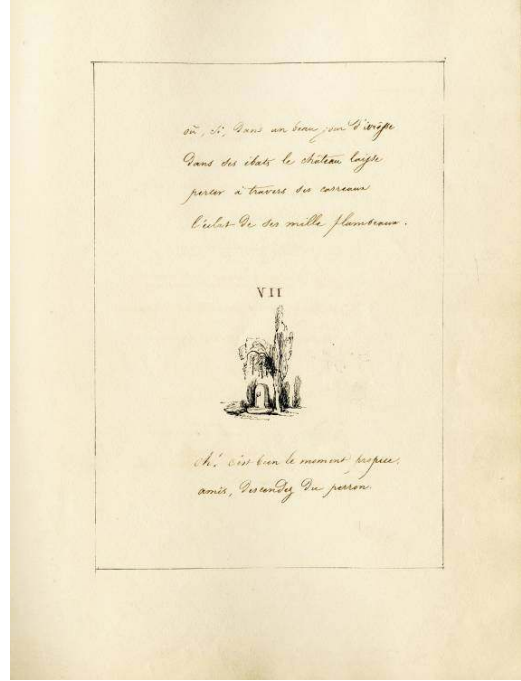 où, si, dans un beau jour d'ivresse
dans ses ébats le château laisse
percer à travers ses carreaux
l'éclat de ses mille flambeaux.
VII
ah! c'est bien le moment propice,
amis, descendez du perron.